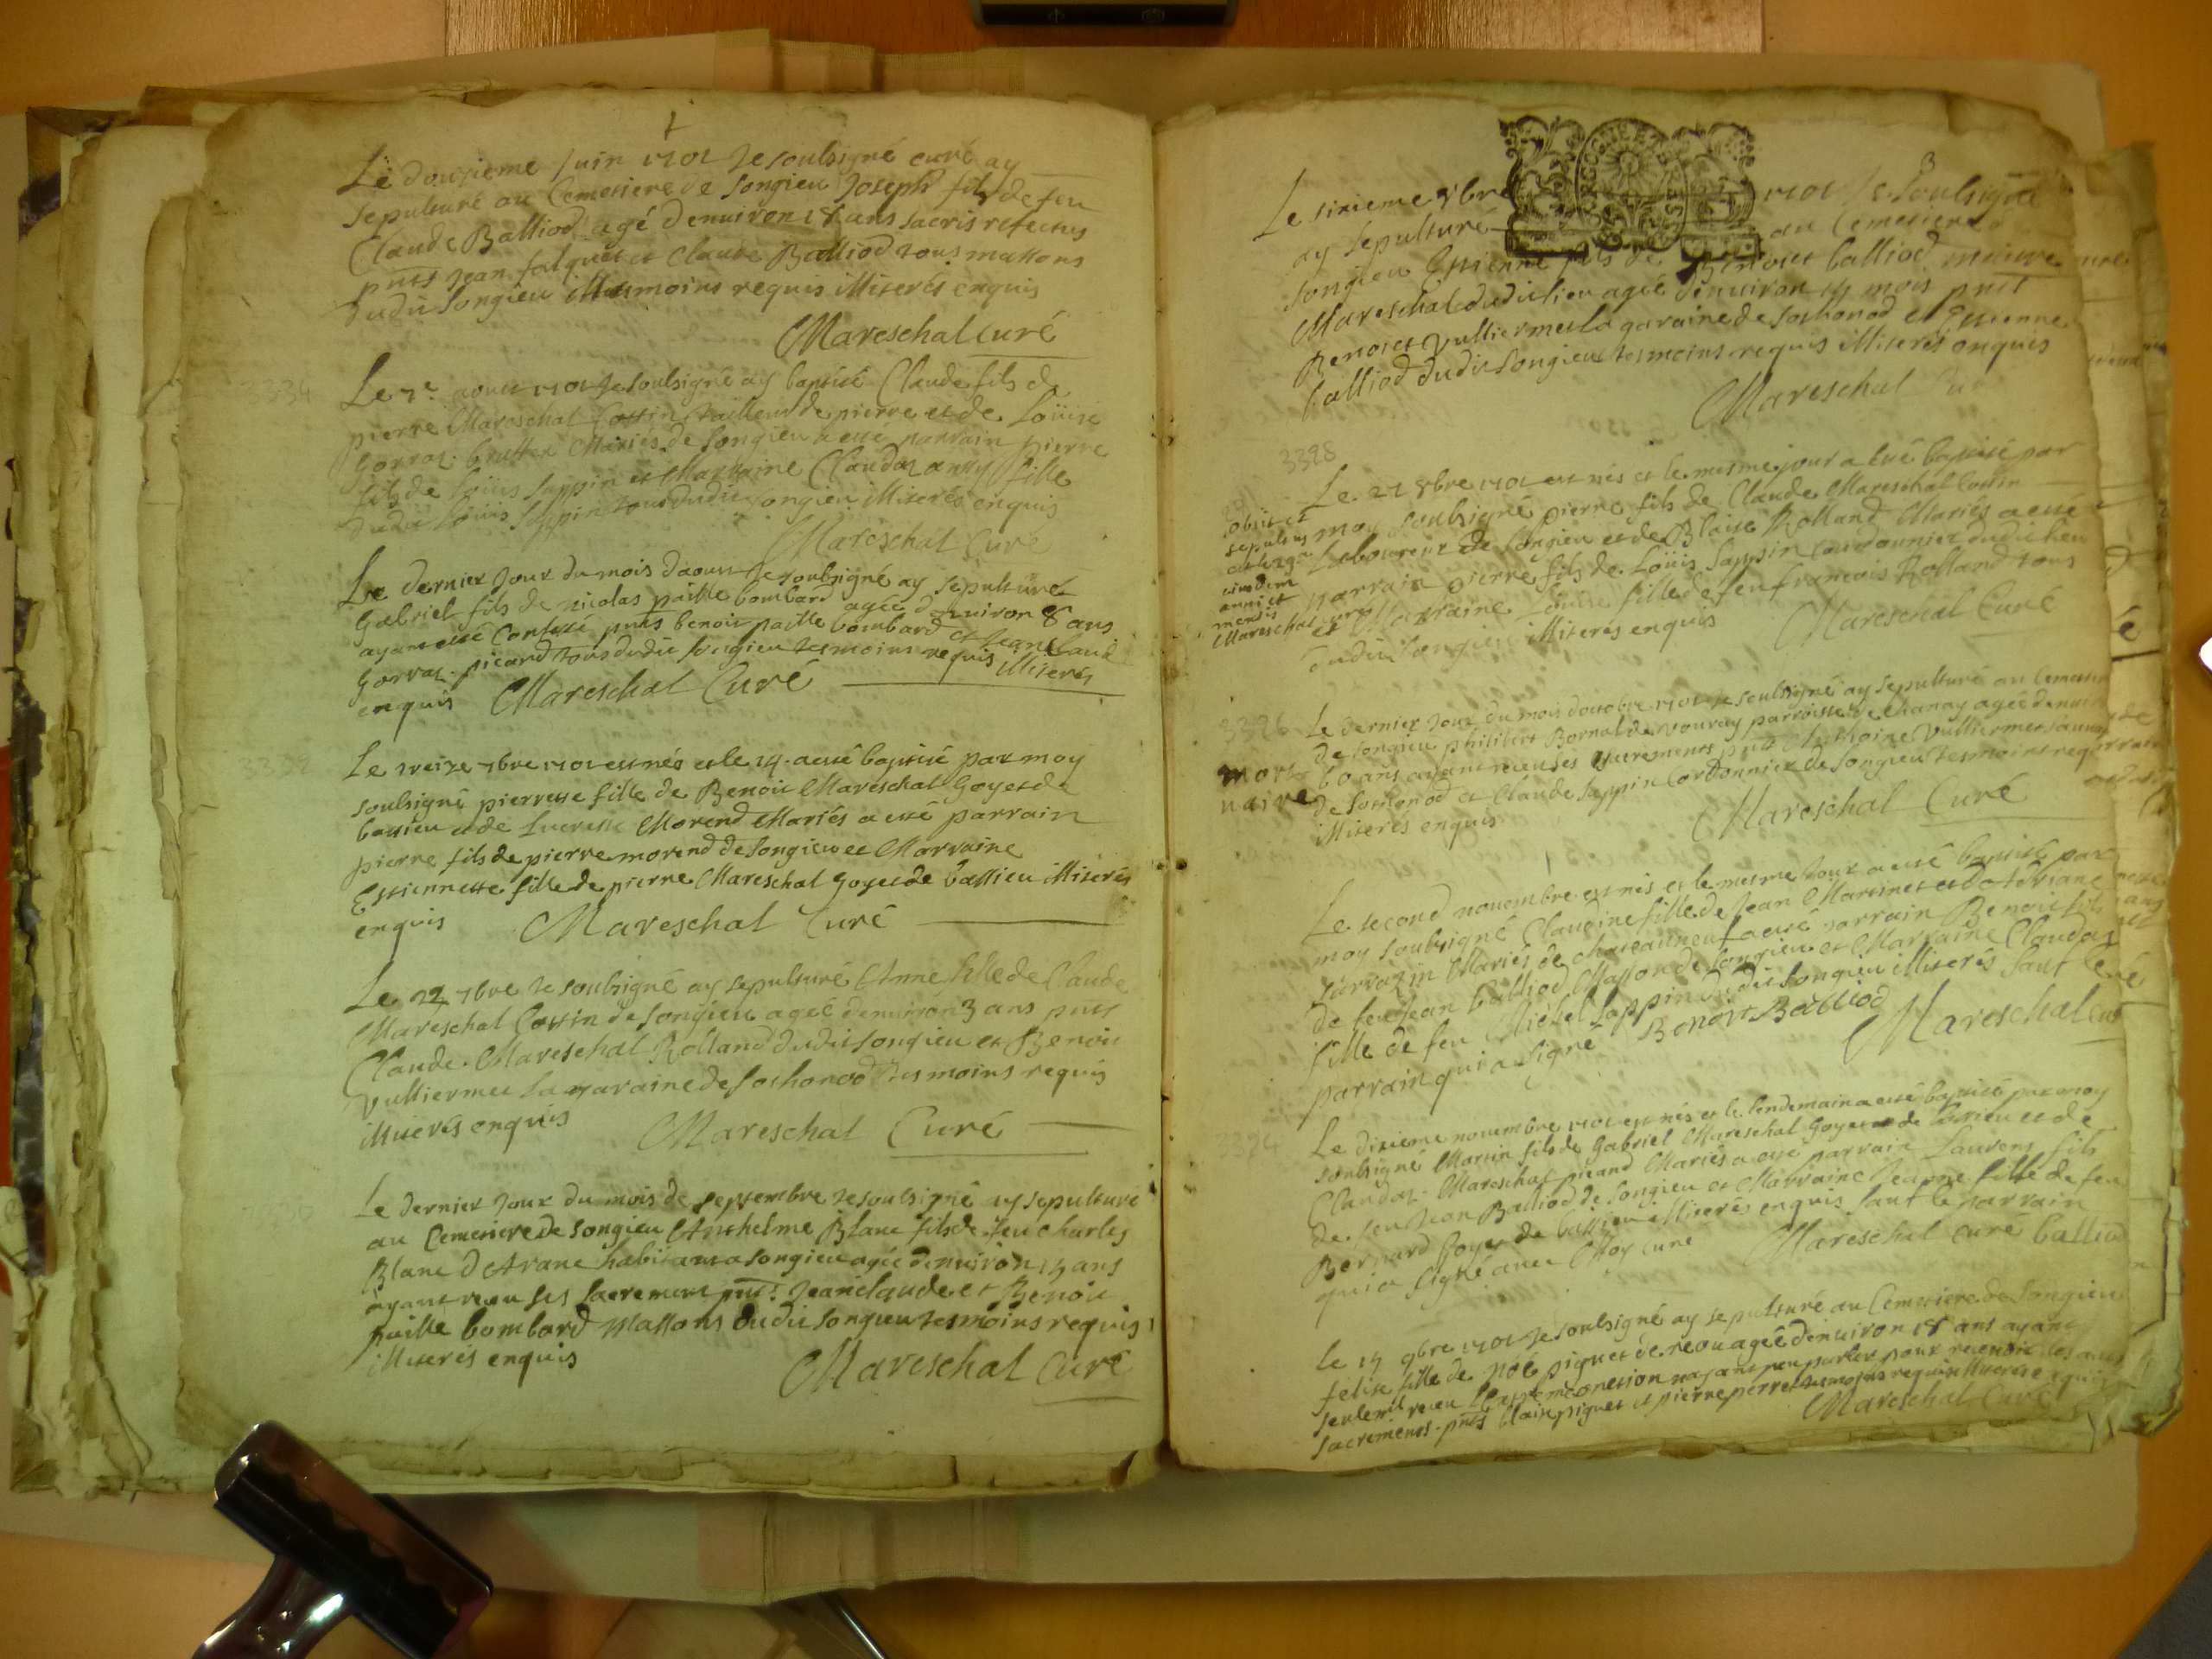 Le douzieme Juin 1701 Je soubsigné curé ay
sepulturé au Cemetiere de Songieu Joseph fils de feu
Claude Balliod agé denuiron 18 ans sacris refectus
pnts Jean falquet et Claude Balliod tous massons
dudit Songieu tesmoins requis illiterés enquis
Mareschal curé
3334
Le 7e aoust 1701 Je soubsigné ay baptisé Claude fils de
pierre Mareschal Cottin tailleur de pierre et de Loüise
Gorraz Mariés de Songieu a esté parrain pierre
fils de Loüis Sappin et Marraine Claudaz fille
dudit Loüis Sappin tous dudit Songieu illiterés enquis
Mareschal Curé
Le dernier Jour du mois daoust Je soubsigné ay sepulturé
Gabriel fils de nicolas paille bombard agée denuiron 8 ans
ayant esté Confessé pnts benoit paille bombard et Jean Claude
Gorraz picard tous dudit Songieu tesmoins requis illiterés
enquis Mareschal Curé
Le treize 7bre 1701 est nés et le 14 a esté baptisé par moy
soubsigné pierresse fille de Benoit Mareschal Goyet de
bassieu et de Lucresse Morend Mariés a esté parrain
pierre fils de pierre morend de Songieu et Marraine
Estiennette fille de pierre Mareschal Goyet de bassieu illiterés
enquis Mareschal Curé
Le 22 7bre Je soubsigné ay sepulturé Anne fille de Claude
Mareschal Cottin de Songieu agée denuiron 3 ans pnts
Claude Mareschal Rolland dudit Songieu et Benoit
Vulliermet la garaine de Sothonod tesmoins requis
illiterés enquis Mareschal Curé
Le dernier Jour du mois de septembre Je soubsigné ay sepulturé
au Cemetiere de Songieu Anthelme Blanc fils de feu Charles
Blanc d Arane habitant a Songieu agée denuiron ans
ayant receu ses sacrements pnts Jean claude et Benoit
paille bombard massons dudit Songieu tesmoins requis
illiterés enquis Mareschal Curé
3
Le sixieme 8bre 1701 Je soubsigné
ay sepulturé au Cemetiere de
Songieu Estienne fils de Benoit balliod
Mareschal dudit lieu agée denuiron mois pnts
Benoit Vulliermet la garaine de Sothonod et Estienne
balliod dudit Songieu tesmoins requis illiterés enquis
Mareschal
3328
Le 21 8bre 1701 est nés et le mesme jour a esté baptisé par
moy soubsigné pierre fils de Claude Mareschal Cottin
Laboureur de Songieu et de Blaise Rolland Mariés a esté
parrain pierre fils de Loüis Sappin cordonnier dudit lieu
et Marraine Loüise fille de feu francois Rolland tous
dudit Songieu illiterés enquis Mareschal Curé
obiit et
sepultus
eiusdem
anni et
mensis
Mareschal curé
3326
Le dernier Jour du mois doctobre 1701 Je soubsigné ay sepulturé au Cemetiere
de Songieu philibert Bornal de vouvray parroisse de Chanay agée denuiron
60 ans ayant receu ses sacrements pnts Anthoine Vulliermet
de Sothonod et Claude Sappin Cordonnier de Songieu tesmoins requis
illiterés enquis Mareschal Curé
mort
naire
Le second nouembre est nés et le mesme Jour a esté baptisé par
moy soubsigné Claudine fille de Jean Martinet et d Adriane
Mariés de chateauneuf a esté parrain Benoit fils
de feu Jean balliod Masson de Songieu et Marraine Claudaz
fille de feu Michel Sappin dudit Songieu illiterés sauf le
parrain qui a signé Benoit Balliod Mareschal curé
3324
Le dixieme nouembre 1701 est nés et le lendemain a esté baptisé par moy
soubsigné Martin fils de Gabriel Mareschal Goyet de bassieu et de
Claudaz Mareschal picard Mariés a esté parrain Laurens fils
de feu Jean Balliod de Songieu et Marraine Jeanne fille de feu
Bernard Goyet de bassieu illiterés enquis sauf le parrain
qui a signé auec Moy curé Mareschal curé balliod
le 14 9bre 1701 Je soubsigné ay sepulturé au Cemetiere de Songieu
felise fille de Noë piguet de reou agée denuiron 18 ans ayant
seulemt receu lextreme onction nayant peu parler pour receuoir les autres
sacrements pnts blaise piguet et pierre perret tesmoins requis illiterés enquis
Mareschal Curé